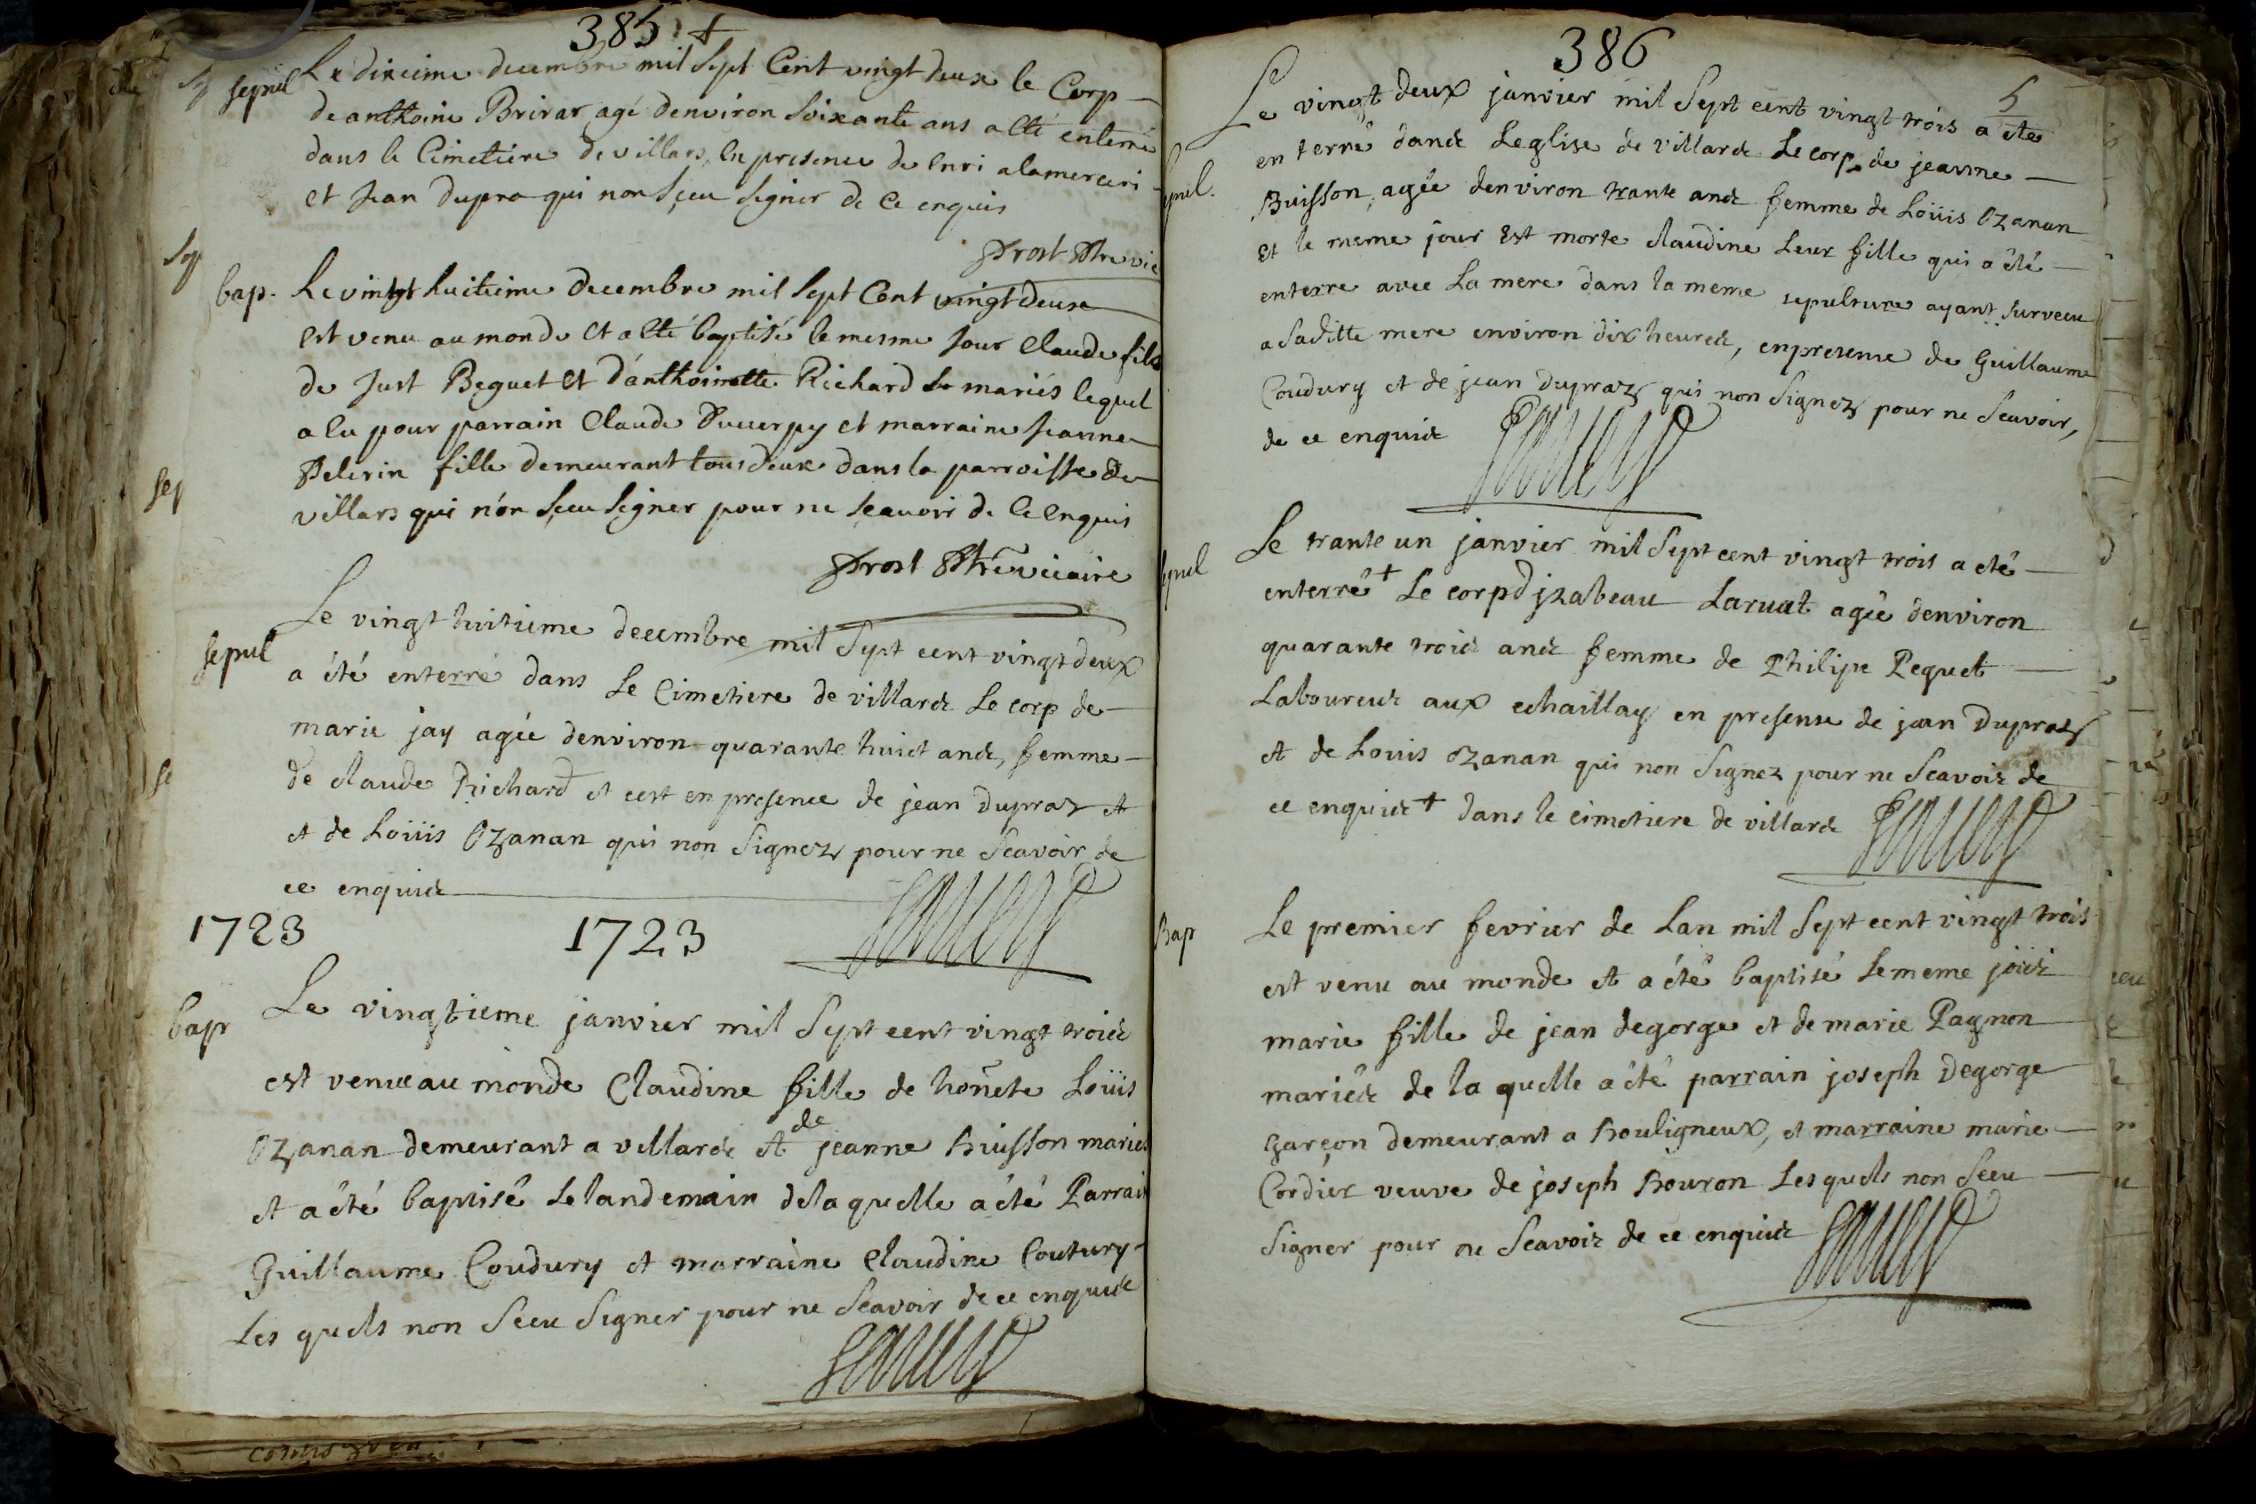 385
sepul Le dixcime decembre mil sept Cent vingt deux le Corp
de anthoine Brirar agé denviron soixante ans a esté enterré
dans le Cimetiere de villars, en presence de enri alamerceri
et Jean dupra qui non sceu signer de ce enquis
Prost Ptre vic
bap. Le vingt huitieme decembre mil sept Cent vingt deux
est venu au monde et a esté baptisé le mesme jour Claude fils
de Just Beguet et d'anthoinette Richard mariés lequel
a eu pour parrain Claude Duverpy et marraine jeanne
Pelerin fille demeurant tous deux dans la parroisse de
villars qui n'on sceu signer pour ne scavoir de ce enquis
Prost Ptre vicaire
sepul Le vingt huitieme decembre mil sept cent vingt deux
a été enterré dans le Cimetiere de villards le corp de
marie jay agée denviron quarante huict ands, femme
de claude Richard et cest en presence de jean dupraz et
et de Loüis Ozanan qui non signez pour ne scavoir de
ce enquis
1723 1723
bap Le vingtieme janvier mil sept cent vingt trois
est venue au monde Claudine fille de honete Loüis
Ozanan demeurant a villards et de jeanne Buisson mariés
et a été baptisé le landemain de la quelle a été Parrain
Guillaume Coudury et marraine claudine Coutury
Les quels non sceu signer pour ne scavoir de ce enquis
386
5
sepul. Le vingt deux janvier mil sept cent vingt trois a été
en terré dands Leglise de villards Le corp de jeanne
Buisson, agée denviron trante ands femme de Loüis Ozanan
et le meme jour est morte claudine Leur fille qui a été
enterre avec La mere dans la meme sepulture ayant survecu
a saditte mere environ dix heures, en presence de Guillaume
Coudury et de jean dupraz qui non signez pour ne scavoir,
de ce enquis
sepul Le trante un janvier mil sept cent vingt trois a été
enterré + Le corp d jzabeau Laruat agée denviron
quarante trois ands femme de Philipe Pequet
Laboureur aux echaillay en presense de jean Dupraz
et de Louis ozanan qui non signez pour ne scavoir de
ce enquis + dans le cimetiere de villards
Bap Le premier fevrier de Lan mil sept cent vingt trois
est venu au monde et a été baptisé le meme jour
marie fille de jean degorge et de marie Pagnon
mariés de la quelle a été parrain joseph Degorge
garçon demeurant a Bouligneux, et marraine marie
Cordier veuve de joseph Bouron Lesquels non sceu
signer pour ne scavoir de ce enquis